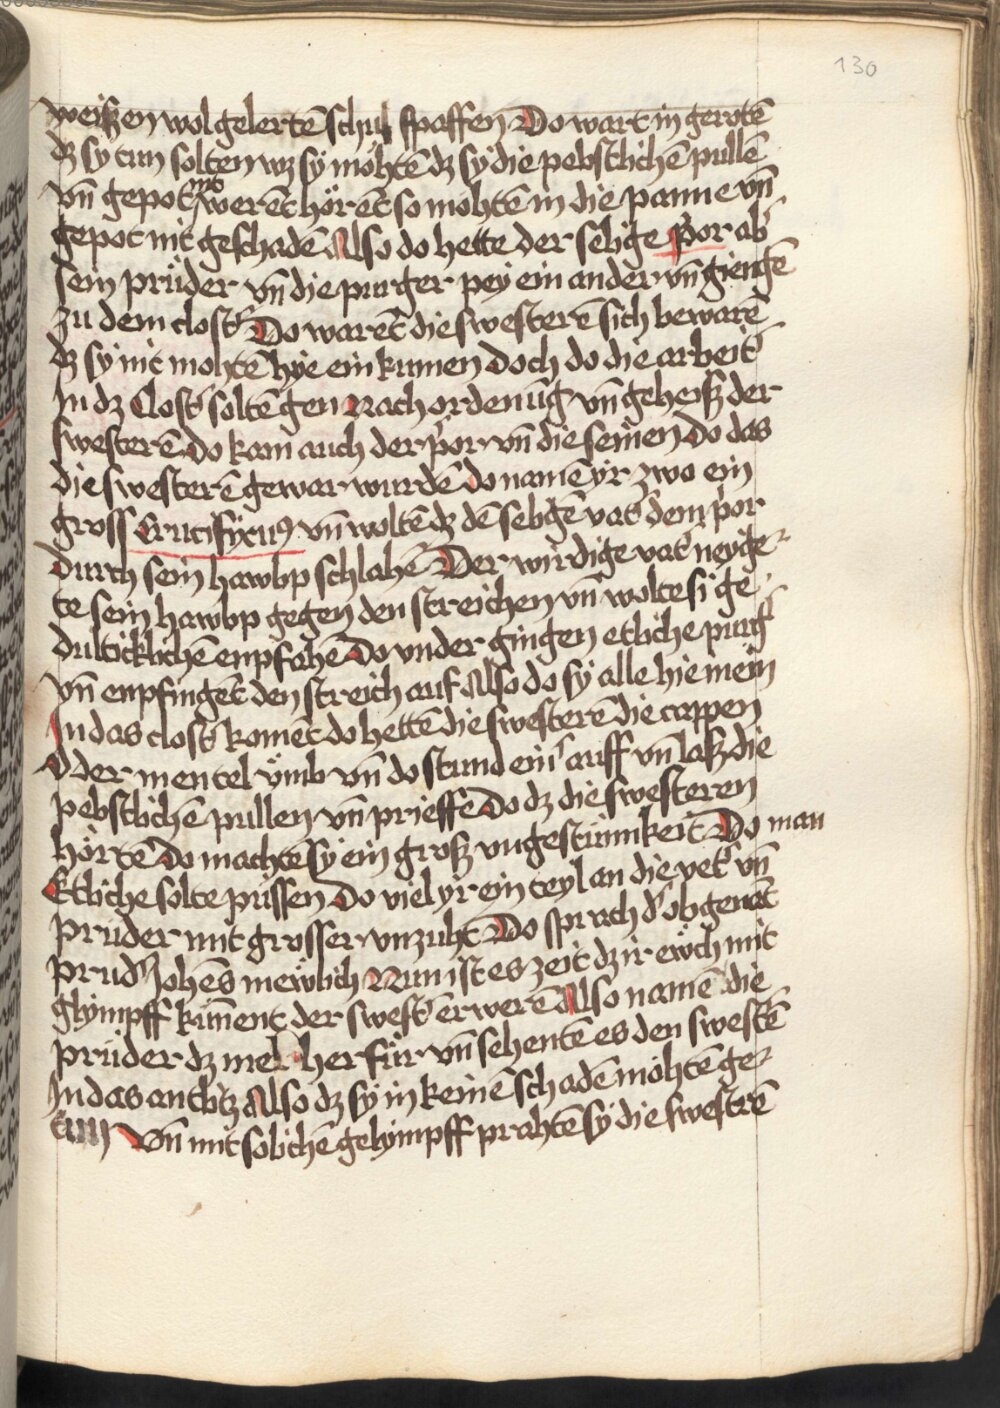 130
weiszen wolgelertē schul pfaffen Do wart in gerotē
dz sy tun solten wz sy mohtē dz sy die pebstlichē pullē
vn̄ gepot nit werēt hörēt so mohtē in die panne vn̄
gepot nit geschadē Also do hette der selige por ab
sein prüder vn̄ die purger pey ein ander vn̄ giengē
zu dem clost Do warēt die swesterē sich bewarē
dz sy nit mohtē hye ein kumen Doch do die arbeit
In dz Clost soltē gen Nach ordenūg vn̄ geheisz der
swesterē do kam auch der por vn̄ die seinen Do das
die swesterē gewar wurdē do namē yr zwo ein
gross Crucifixus vn̄ woltē dz dē seligē vat dem por
durch sein hawbp schlahē Der wirdige vat neyge
te sein hawbp gegen den streichen vn̄ wolte si ge
dulticklichē enpfahē Do vnder gingen etliche purg
vn̄ enpfingēt den streich auf Also do sy alle hie mein
In das clost komēt do hettē die swesterē die cappen
Oder mentel vmb vn̄ do stund ein auff vn̄ lasz die
pebstlichē pullen vn̄ prieffe Do dz die swesteren
hörtē Do machtē sy ein grosz vngestümikeit Do man
Etliche solte püssen Do viel yr ein teyl an die vet vn̄
prüder mit grosser vnzuht Do sprach d obgenāt
prud Johēs mewlich Nun ist es zeit dz ir ewch mit
glympff kūment der swest erwerē Also namē die
prüder dz mel her für vn̄ sehentē es den swestē
In das antlitz Also dz sy in keinē schadē mohtē ge
tun Vn̄ mit solichē gelympff prahtē sy die swestrē